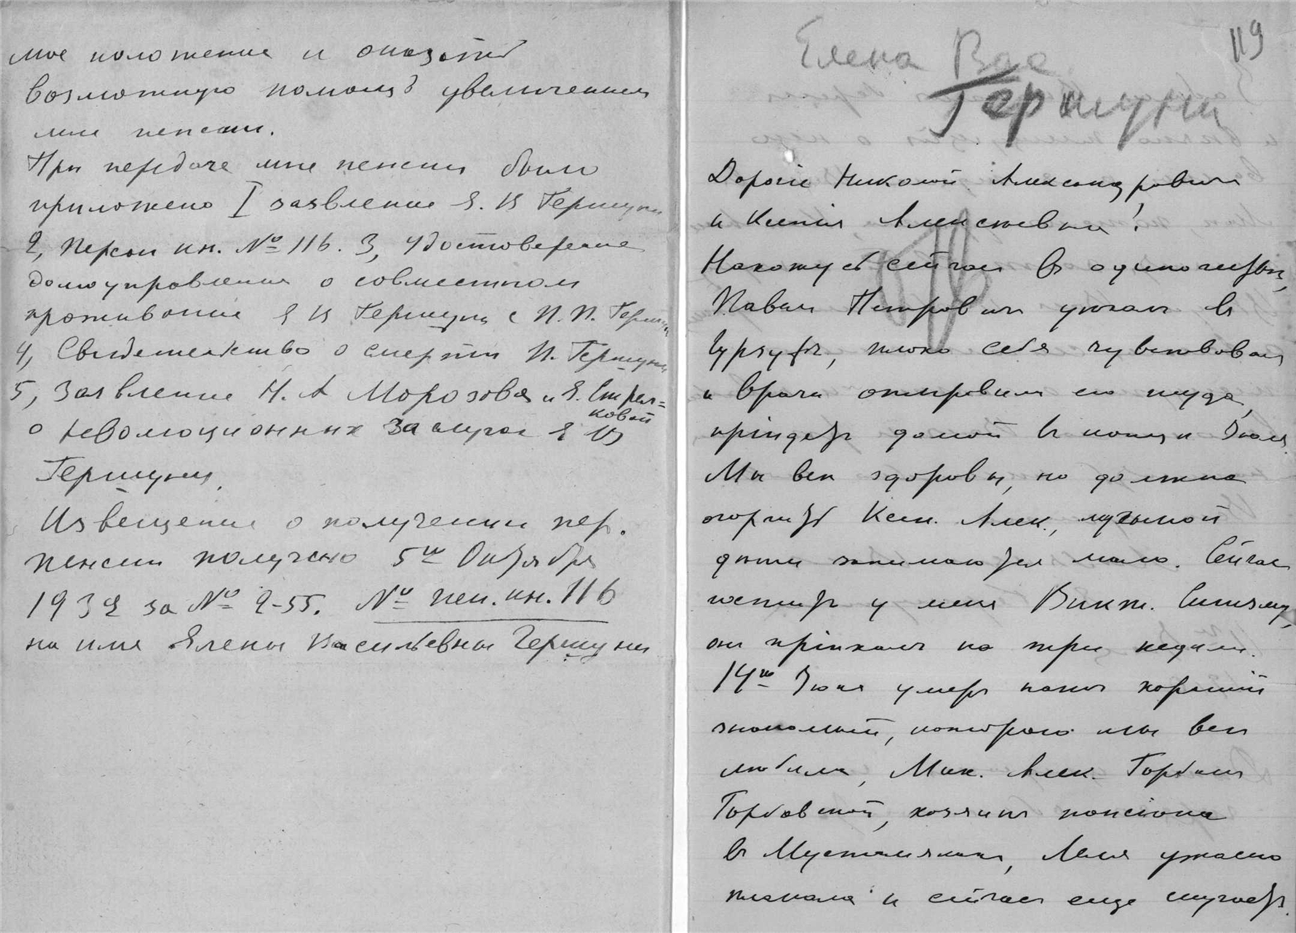 мое положение и оказать
возможную помощь увеличением
мне пенсии.
При передаче мне пенсии было
приложено I заявление Е. В Гершуни
2, Персон кн. № 116. 3, удостоверение
домоуправления о совместном
проживание Е В Гершуни с П. П. Герш
4, Свидетельство о смерти П. Гершуни
5, Заявление Н. А Морозова и Е. Стрел=
ковой
о революционных заслугах Е В
Гершуни.
Извещение о получении пер.
пенсии получено 5го Октября
1932 за № 2-55. № пен. кн. 116
на имя Елены Васильевны Гершуни
119
Елена Вас
Гершуни
Дорогие Николай Александрович
и Ксенія Алексеевна!
Нахожусь сейчас в одиночестве,
Павел Петрович уехал в
Гурзуф, плохо себя чувствовал
и врачи отправили его туда,
пріедет домой в конце Іюля.
Мы все здоровы, но должна
огорчить Ксен. Алек., музыкой
дети занимаются мало. Сейчас
гостит у меня Викт.
он пріехал на три недели.
14го Іюня умер наш хороший
знакомый, которого мы все
любили, Мих. Алек. Горбан
Горбовской, хозяин пансіона
в Мустамяках, Леля ужасно
плакала и сейчас еще скучает.